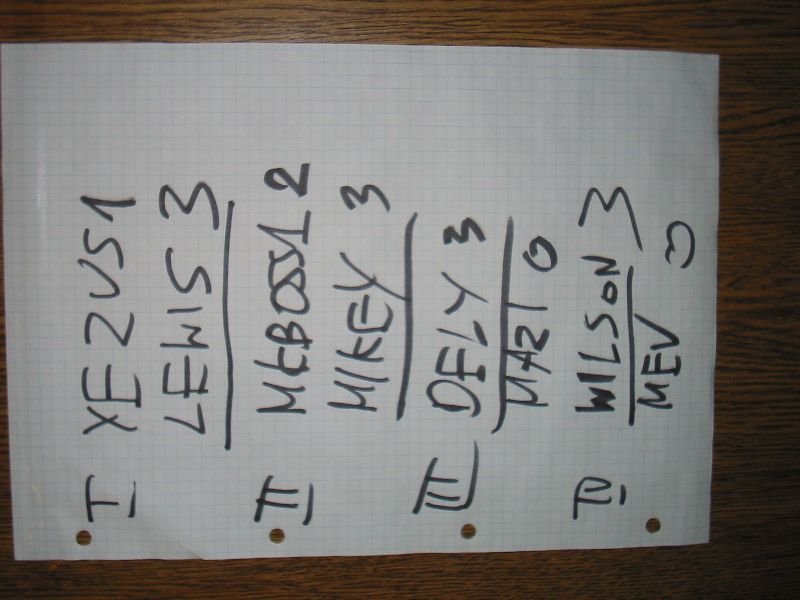 I XEZUS 1
LEWIS 3
II MCBOSS1 2
MIKEY 3
III DELY 3
MAZI 0
IV WILSON 3
MEV